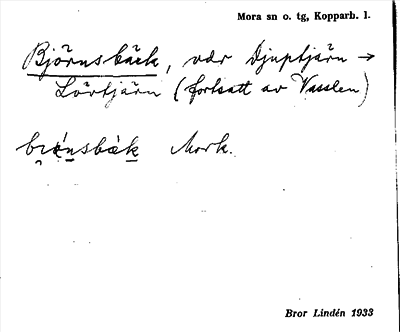 Mora sn o. tg, Kopparb. l.
Björnsbäck, vær Djuptjärn →
Lövtjärn (fortsatt av Vasslen)
Mork.
Bror Lindén 1933